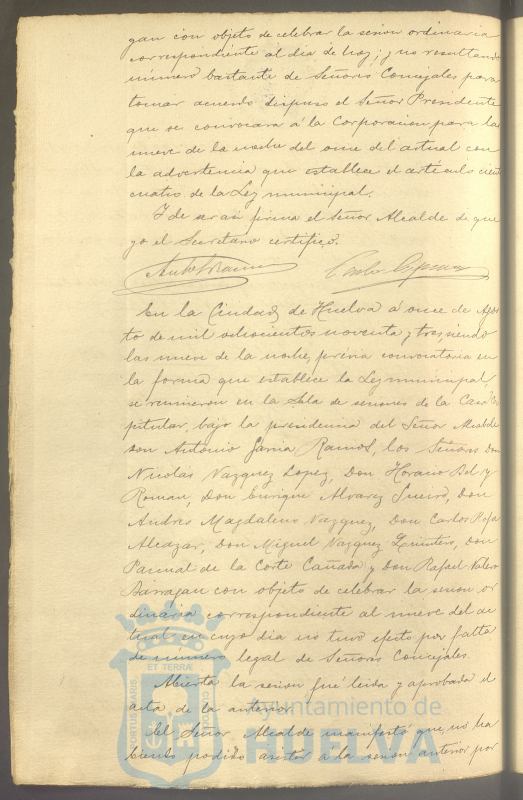 gan con objeto de celebrar la sesion ordinaria
correspondiente al dia de hoy; y no resultando
número bastante de Señores Concejales para
tomar acuerdo dispuso el Señor Presidente
que se convocara á la Corporacion para las
nueve de la noche del once del actual con
la advertencia que establece el articulo cien
cuatro de la Ley municipal.
Y de ser asi firma el Señor Alcalde de que
yo el Secretario certifico.
En la Ciudad de Huelva á once de Agos
to de mil ochocientos noventa y tres, siendo
las nueve de la noche, prévia convocatoria en
la forma que establece la Ley municipal,
se reunieron en la Sala de sesiones de la Casa Ca
pitular, bajo la presidencia del Señor Alcalde
don Antonio Garcia Ramos, los Señores Don
Nicolás Vazquez Lopez, Don Horacio Bel y
Roman, Don Enrique Alvarez Sueiro, Don
Andrés Magdaleno Vazquez, Don Carlos Rofa
Alcazar, Don Miguel Vazquez Quintero, Don
Pascual de la Corte Cañada y Don Rafael Valero
Barragan con objeto de celebrar la sesion or
dinaria correspondiente al nueve del ac
tual, en cuyo dia no tuvo efecto por falta
de número legal de Señores Concejales.
Abierta la sesion fué leida y aprobada el
acta de la anterior.
El Señor Alcalde manifestó que, no ha
biendo podido asistir á la sesion anterior por
PORTUS MARIS ET TERRÆ CUSTODIA
ayuntamiento de
HUELVA